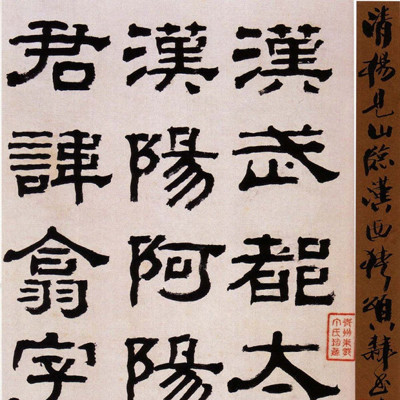 清楊見山臨漢西狹頌隸
漢武都太
漢陽阿陽
君諱翕字